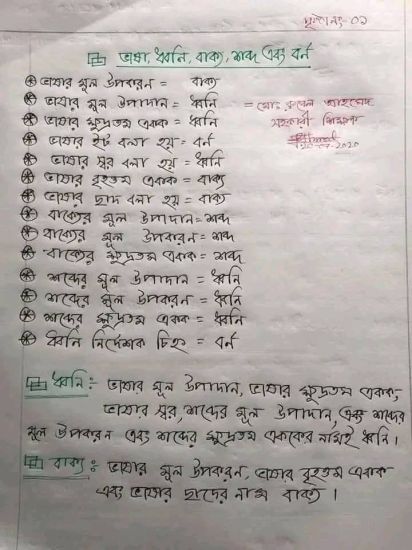 পৃষ্ঠা নং - ০১
ভাষা, ধ্বনি, বাক্য, শব্দ এবং বর্ন
ভাষার মূল উপকরন = বাক্য
ভাষার মূল উপাদান = ধ্বনি
ভাষার ক্ষুদ্রতম একক = ধ্বনি
ভাষার ইট বলা হয় = বর্ন
ভাষার স্বর বলা হয় = ধ্বনি
ভাষার বৃহত্তম একক = বাক্য
ভাষার ছাদ বলা হয় = বাক্য
বাক্যের মূল উপাদান = শব্দ
বাক্যের মূল উপকরন = শব্দ
বাক্যের ক্ষুদ্রতম একক = শব্দ
শব্দের মূল উপাদান = ধ্বনি
শব্দের মূল উপকরন = ধ্বনি
শব্দের ক্ষুদ্রতম একক = ধ্বনি
ধ্বনি নির্দেশক চিহ্ন = বর্ন
= মোঃ রুবেল আহমেদ
সহকারী শিক্ষক
2020
ধ্বনি :- ভাষার মূল উপাদান, ভাষার ক্ষুদ্রতম একক,
ভাষার স্বর, শব্দের মূল উপাদান, এবং শব্দের
মূল উপকরন এবং শব্দের ক্ষুদ্রতম এককের নামই ধ্বনি।
বাক্য : ভাষার মূল উপকরন, ভাষার বৃহত্তম একক
এবং ভাষার ছাদের নাম বাক্য।